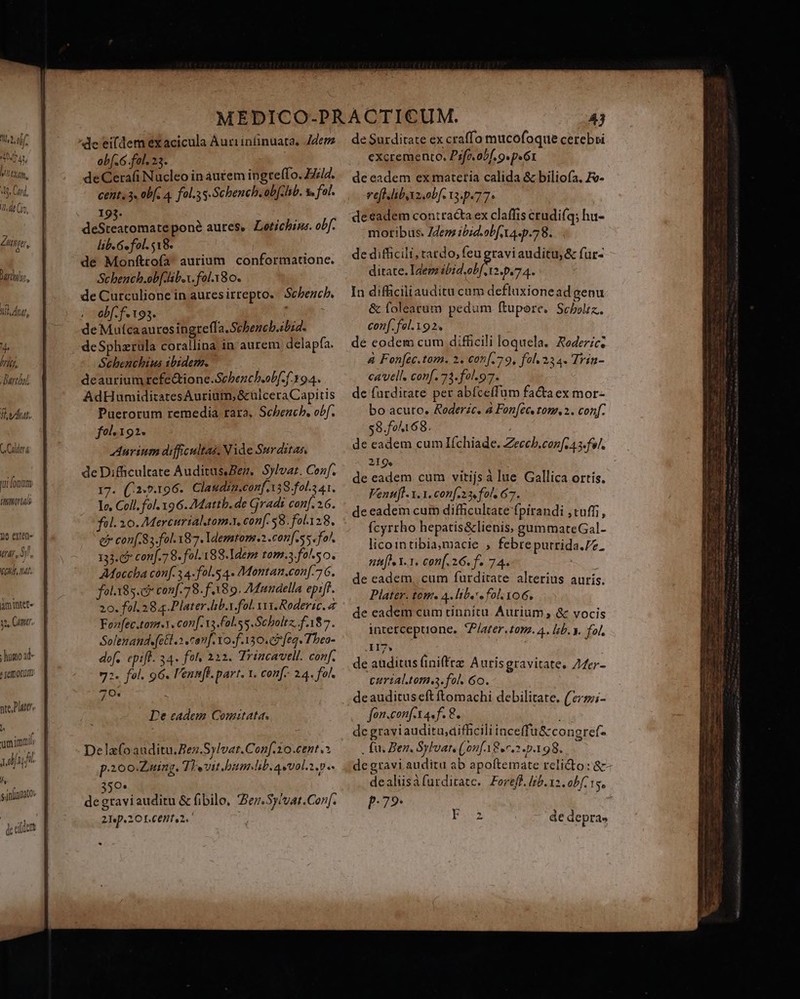 MEDICO-PRACTICUM. 43
de eisdem ex acicula Auri insinuata. Idem
obs. 6. fol. 23.
de Cerasi Nucleo in aurem ingresso. Hild.
cent. 3. obs. 4. fol. 35. Schench. obs. lib. 1. fol.
193.
de Steatomate ponè aures. Lotichius. obs.
lib. 6. fol. 518.
de Monstrosa aurium conformatione.
Schench. obs. lib. 1. fol. 180.
de Curculione in aures irrepto. Schench.
obs. f. 193.
de Musca aures ingressa. Schench. ibid.
de Sphærula corallina in aurem delapsa.
Schenchius ibidem.
de aurium refectione. Schench. obs. f. 194.
Ad Humiditates Aurium, & ulcera Capitis
Puerorum remedia rara. Schench. obs.
fol. 192.
Aurium difficultas, Vide Surditas.
de Difficultate Auditus. Ben. Sylvat. Cons.
17. C. 2. p. 196. Claudin. cons. 138. fol. 341.
Io. Coll. fol. 196. Matth. de Gradi cons. 26.
fol. 20. Mercurial. tom. 1. cons. 58. fol. 128.
& cons. 83. fol. 187. Idem tom. 2. cons. 55. fol.
133. & cons. 78. fol. 188. Idem tom. 3. fol. 50.
Moccha cons. 34. fol. 54. Montan. cons. 76.
fol. 185. & cons. 78. f. 189. Mundella epist.
20. fol. 284. Plater. lib. 1. fol. 111. Roderic. à
Fonsec. tom. 1. cons. 13. fol. 55. Scholtz. f. 187.
Solenand. sect. 2. cons. 10. f. 130. & seq. Theo-
dos. epist. 34. fol. 222. Trincavell. cons.
72. fol. 96. Venust. part. 1. cons. 24. fol.
70.
De eadem Comitata.
De læso auditu. Ben. Sylvat. Cons. 20. cent. 2
p. 200. Zuing. 350.
de gravi auditu & sibilo, Ben. Sylvat. Cons.
21. p. 201. cent. 2.
de Surditate ex crasso mucosoque cerebri
excremento. Piso. obs. 9. p. 61
de eadem ex materia calida & biliosa. Fo-
rest. lib. 12. obs. 13. p. 77.
de eadem contracta ex classis crudisq; hu-
moribus. Idem ibid. obs. 14. p. 78.
de difficili, tardo, seu gravi auditu, & sur-
ditate. Idem ibid. obs. 12. p. 74.
In difficili auditu cum defluxione ad genu
& solearum pedum stupore. Scholtz.
cons. fol. 192.
de eodem cum difficili loquela. Roderic.
à Fonsec. tom. 2. cons. 79. fol. 234. Trin-
cavell. cons. 73. fol. 97.
de surditate per abscessum facta ex mor-
bo acuto. Roderic. à Fonsec. tom. 2. cons.
58. fol. 168.
de eadem cum Ischiade. Zecch. cons. 43. fol.
219.
de eadem cum vitijs à lue Gallica ortis.
Venust. 1. 1. cons. 23. fol. 67.
de eadem cum difficultate spirandi, tussi,
scyrrho hepatis & lienis, gummate Gal-
lico in tibia, macie, febre putrida. Ve-
nust. 1. 1. cons. 26. f. 74.
de eadem, cum surditate alterius auris.
Plater. tom. 4. lib. 1. fol. 106.
de eadem cum tinnitu Aurium, & vocis
interceptione. Plater. tom. 4. lib. 1. fol.
117.
de auditus sinistræ Auris gravitate. Mer-
curial. tom. 3. fol. 60.
de auditus est stomachi debilitate. (ermi-
son. cons. 14. f. 8.
de gravi auditu, difficili incessu & congres-
su. Ben. Sylvat. Cons. 18. c. 2. p. 198.
de gravi auditu ab apostemate relicto: &
de alius à surditate. Forest. lib. 12. obs. 15.
p. 79.
F 2 de depra-